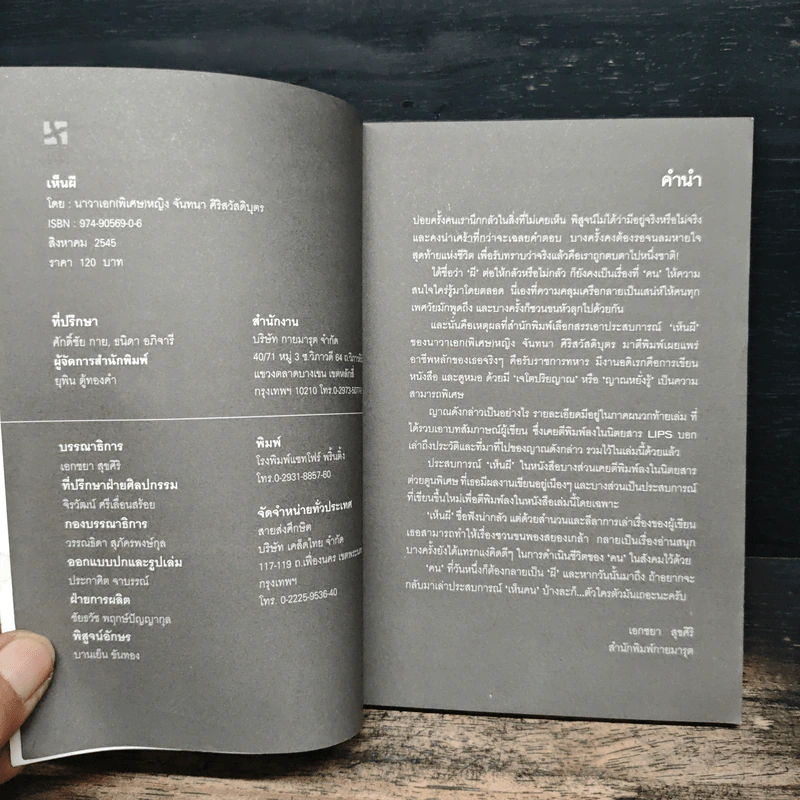 เห็นผี
โดย : นาวาเอก(พิเศษ)หญิง จันทนา ศิริสวัสดิบุตร
ISBN : 974-90569-0-6
สิงหาคม 2545
ราคา 120 บาท
ที่ปรึกษา
ศักดิ์ชัย กาย, ธนิดา อภิจารี
ผู้จัดการสำนักพิมพ์
ยุพิน ตู้ทองคำ
สำนักงาน
บริษัท กายมารุต จำกัด
40/71 หมู่ 3 ซ.วิภาวดี 64 ถ.วิภาวดี
แขวงตลาดบางเขน เขตหลักสี่
กรุงเทพฯ 10210 โทร.0-2973-5077-8
บรรณาธิการ
เอกชยา สุขศิริ
ที่ปรึกษาฝ่ายศิลปกรรม
จิรวัฒน์ ศรีเลื่อนสร้อย
กองบรรณาธิการ
วรรณธิดา สุภัครพงษ์กุล
ออกแบบปกและรูปเล่ม
ประกาศิต จาบรรณ์
ฝ่ายการผลิต
ชัยธวัช พฤกษ์ปัญญากุล
พิสูจน์อักษร
บานเย็น ขันทอง
พิมพ์
โรงพิมพ์แซทโฟร์ พริ้นติ้ง
โทร.0-2931-8857-60
จัดจำหน่ายทั่วประเทศ
สายส่งศึกษิต
บริษัท เคล็ดไทย จำกัด
117-119 ถ.เฟื่องนคร เขตพระนคร
กรุงเทพฯ
โทร. 0-2225-9536-40
คำนำ
บ่อยครั้งคนเรานึกกลัวในสิ่งที่ไม่เคยเห็น พิสูจน์ไม่ได้ว่ามีอยู่จริงหรือไม่จริง
และคงน่าเศร้าที่กว่าจะเฉลยคำตอบ บางครั้งคงต้องรอจนลมหายใจ
สุดท้ายแห่งชีวิต เพื่อรับทราบว่าจริงแล้วคือเราถูกตบตาไปหนึ่งชาติ!
ได้ชื่อว่า 'ผี' ต่อให้กลัวหรือไม่กลัว ก็ยังคงเป็นเรื่องที่ 'คน' ให้ความ
สนใจใคร่รู้มาโดยตลอด นี่เองที่ความคลุมเครือกลายเป็นเสน่ห์ให้คนทุก
เพศวัยมักพูดถึง และบางครั้งก็ชวนขนหัวลุกไปด้วยกัน
และนั่นคือเหตุผลที่สำนักพิมพ์เลือกสรรเอาประสบการณ์ 'เห็นผี'
ของนาวาเอก(พิเศษ)หญิง จันทนา ศิริสวัสดิบุตร มาตีพิมพ์เผยแพร่
อาชีพหลักของเธอจริงๆ คือรับราชการทหาร มีงานอดิเรกคือการเขียน
หนังสือ และดูหมอ ด้วยมี 'เจโตปริยญาณ' หรือ 'ญาณหยั่งรู้' เป็นความ
สามารถพิเศษ
ญาณดังกล่าวเป็นอย่างไร รายละเอียดมีอยู่ในภาคผนวกท้ายเล่ม ที่
ได้รวบเอาบทสัมภาษณ์ผู้เขียน ซึ่งเคยตีพิมพ์ลงในนิตยสาร LIPS บอก
เล่าถึงประวัติและที่มาที่ไปของญาณดังกล่าว รวมไว้ในเล่มนี้ด้วยแล้ว
ประสบการณ์ 'เห็นผี' ในหนังสือบางส่วนเคยตีพิมพ์ลงในนิตยสาร
ต่วยตูนพิเศษ ที่เธอมีผลงานเขียนอยู่เนืองๆ และบางส่วนเป็นประสบการณ์
ที่เขียนขึ้นใหม่เพื่อตีพิมพ์ลงในหนังสือเล่มนี้โดยเฉพาะ
'เห็นผี' ชื่อฟังน่ากลัว แต่ด้วยสำนวนและลีลาการเล่าเรื่องของผู้เขียน
เธอสามารถทำให้เรื่องชวนขนพองสยองเกล้า กลายเป็นเรื่องอ่านสนุก
บางครั้งยังได้แทรกแง่คิดดีๆ ในการดำเนินชีวิตของ 'คน' ในสังคมไว้ด้วย
'คน' ที่วันหนึ่งก็ต้องกลายเป็น 'ผี' และหากวันนั้นมาถึง ถ้าอยากจะ
กลับมาเล่าประสบการณ์ 'เห็นคน' บ้างละก็...ตัวใครตัวมันเถอะนะครับ
เอกชยา สุขศิริ
สำนักพิมพ์กายมารุต